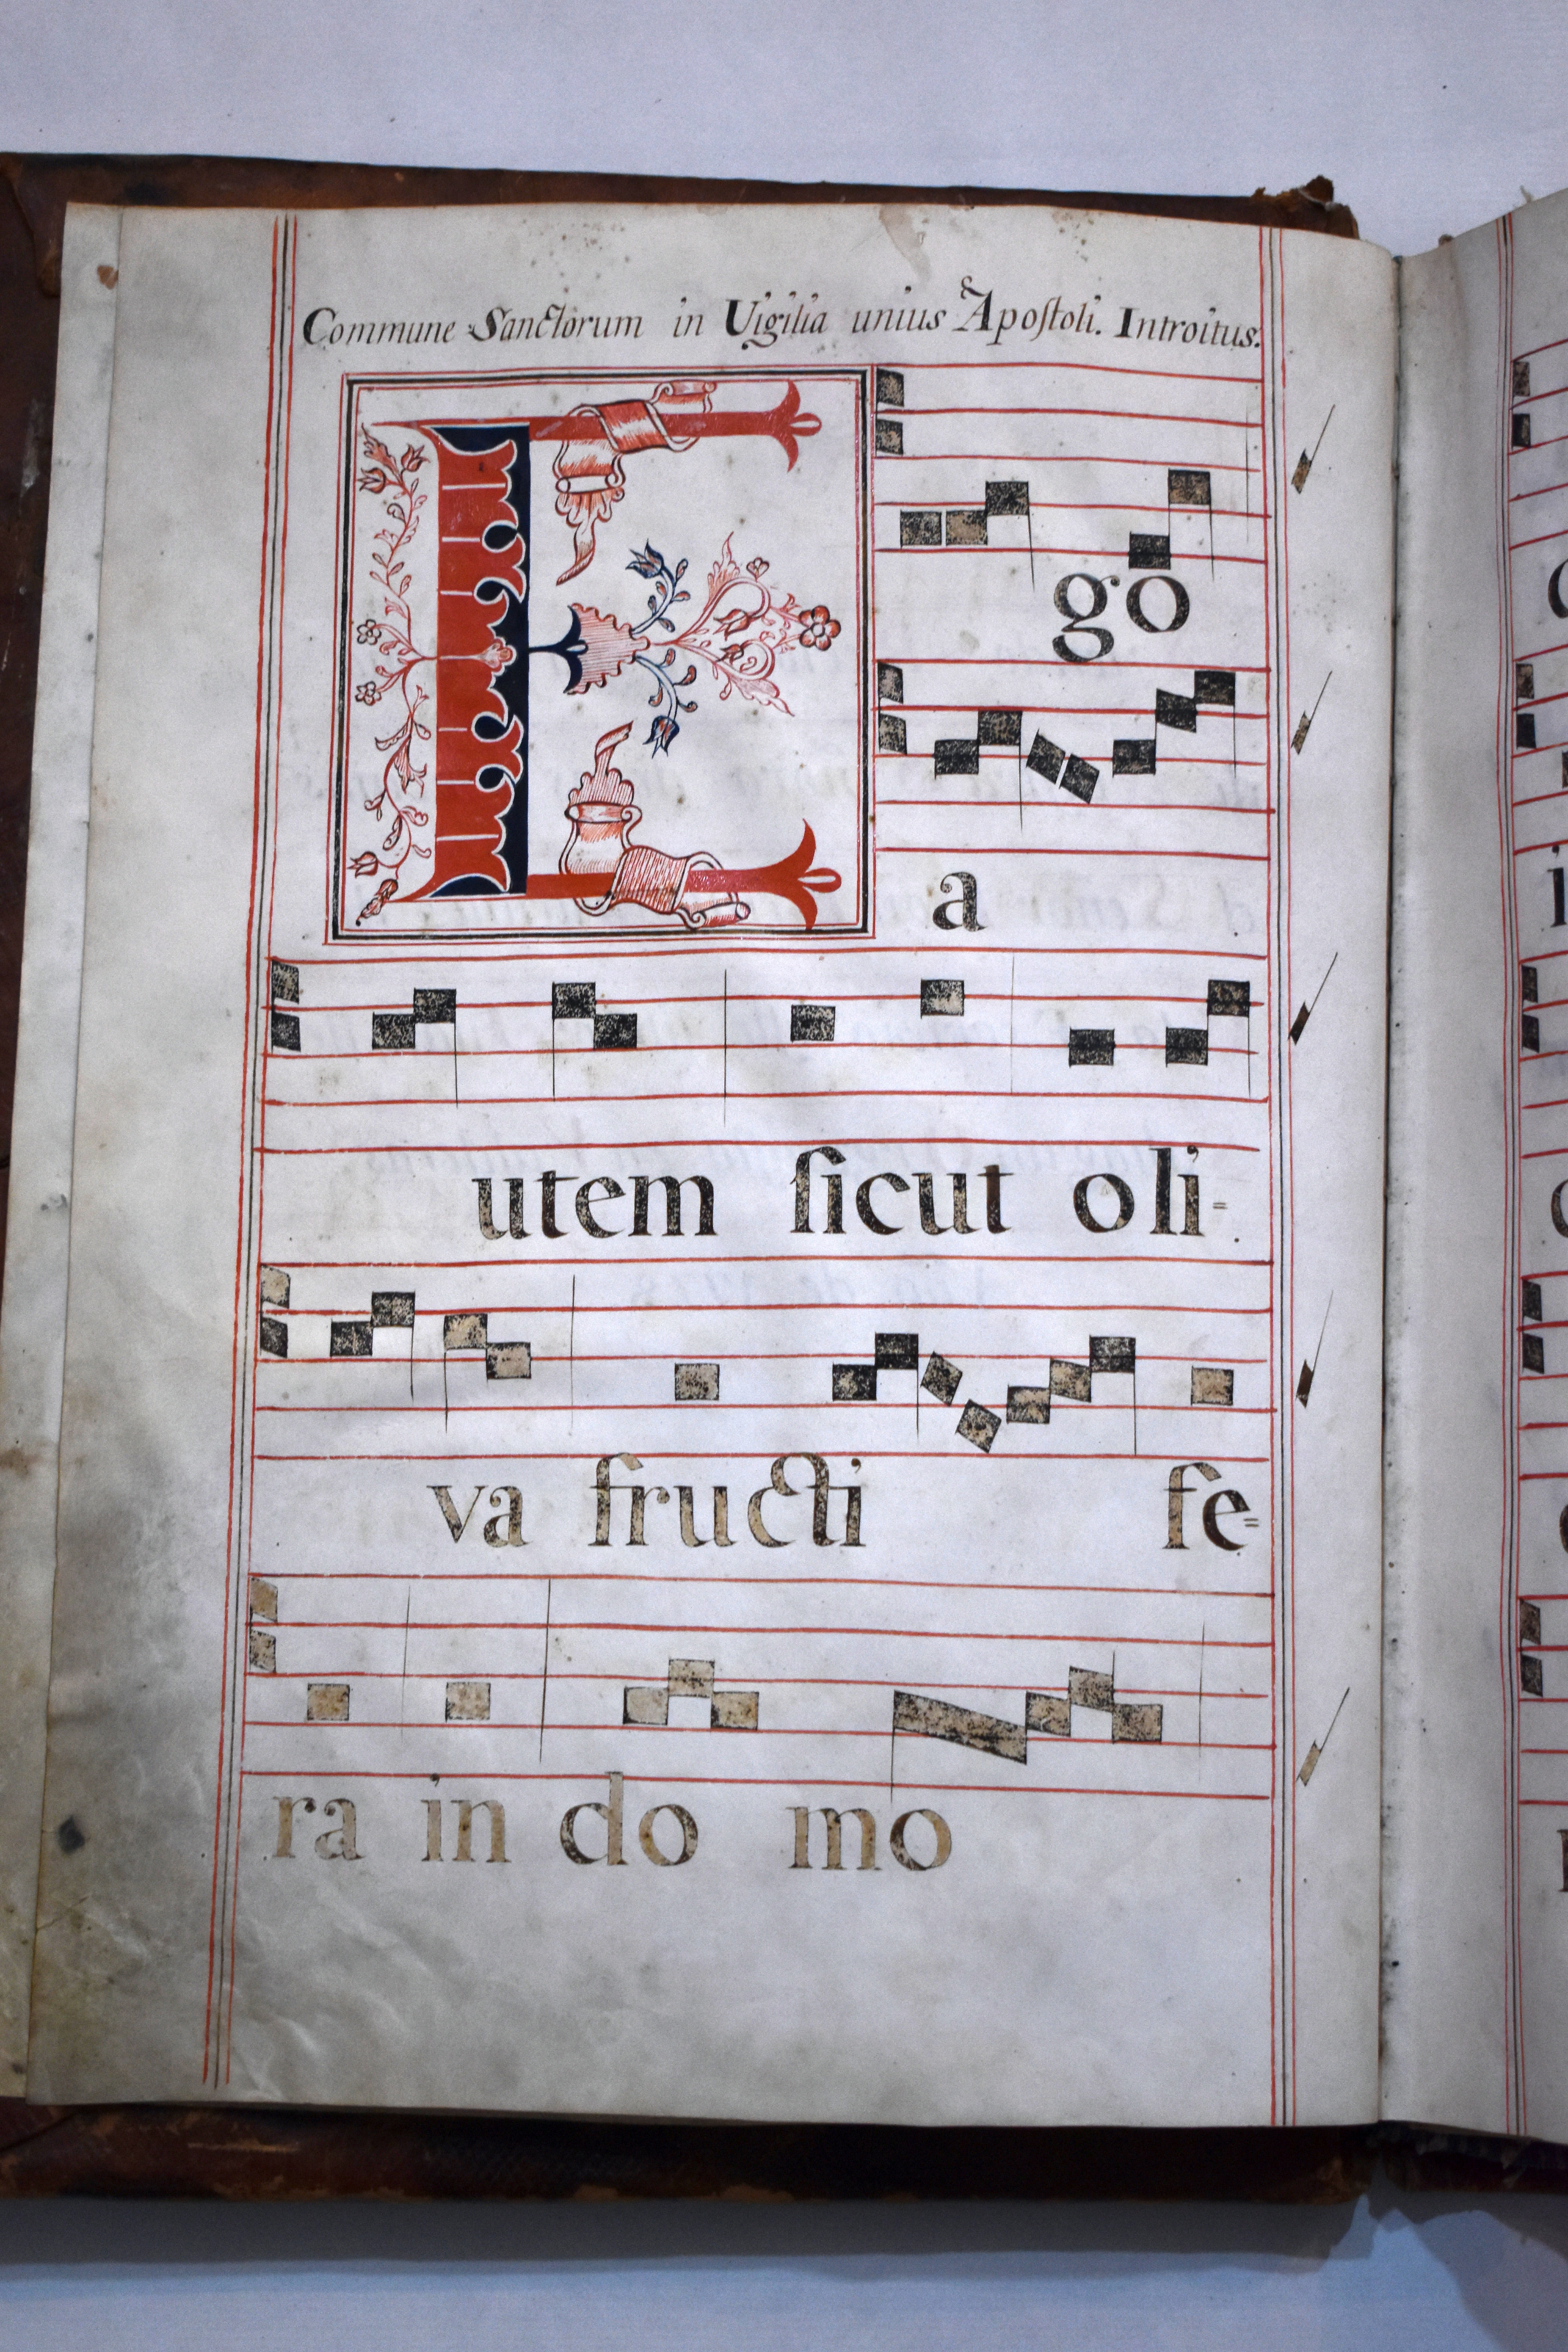 Commune Sanctorum in Uigilia unius Apoſtoli. Introitus.
E
go
a
utem ſicut oli=
va fructi fe=
ra in do mo